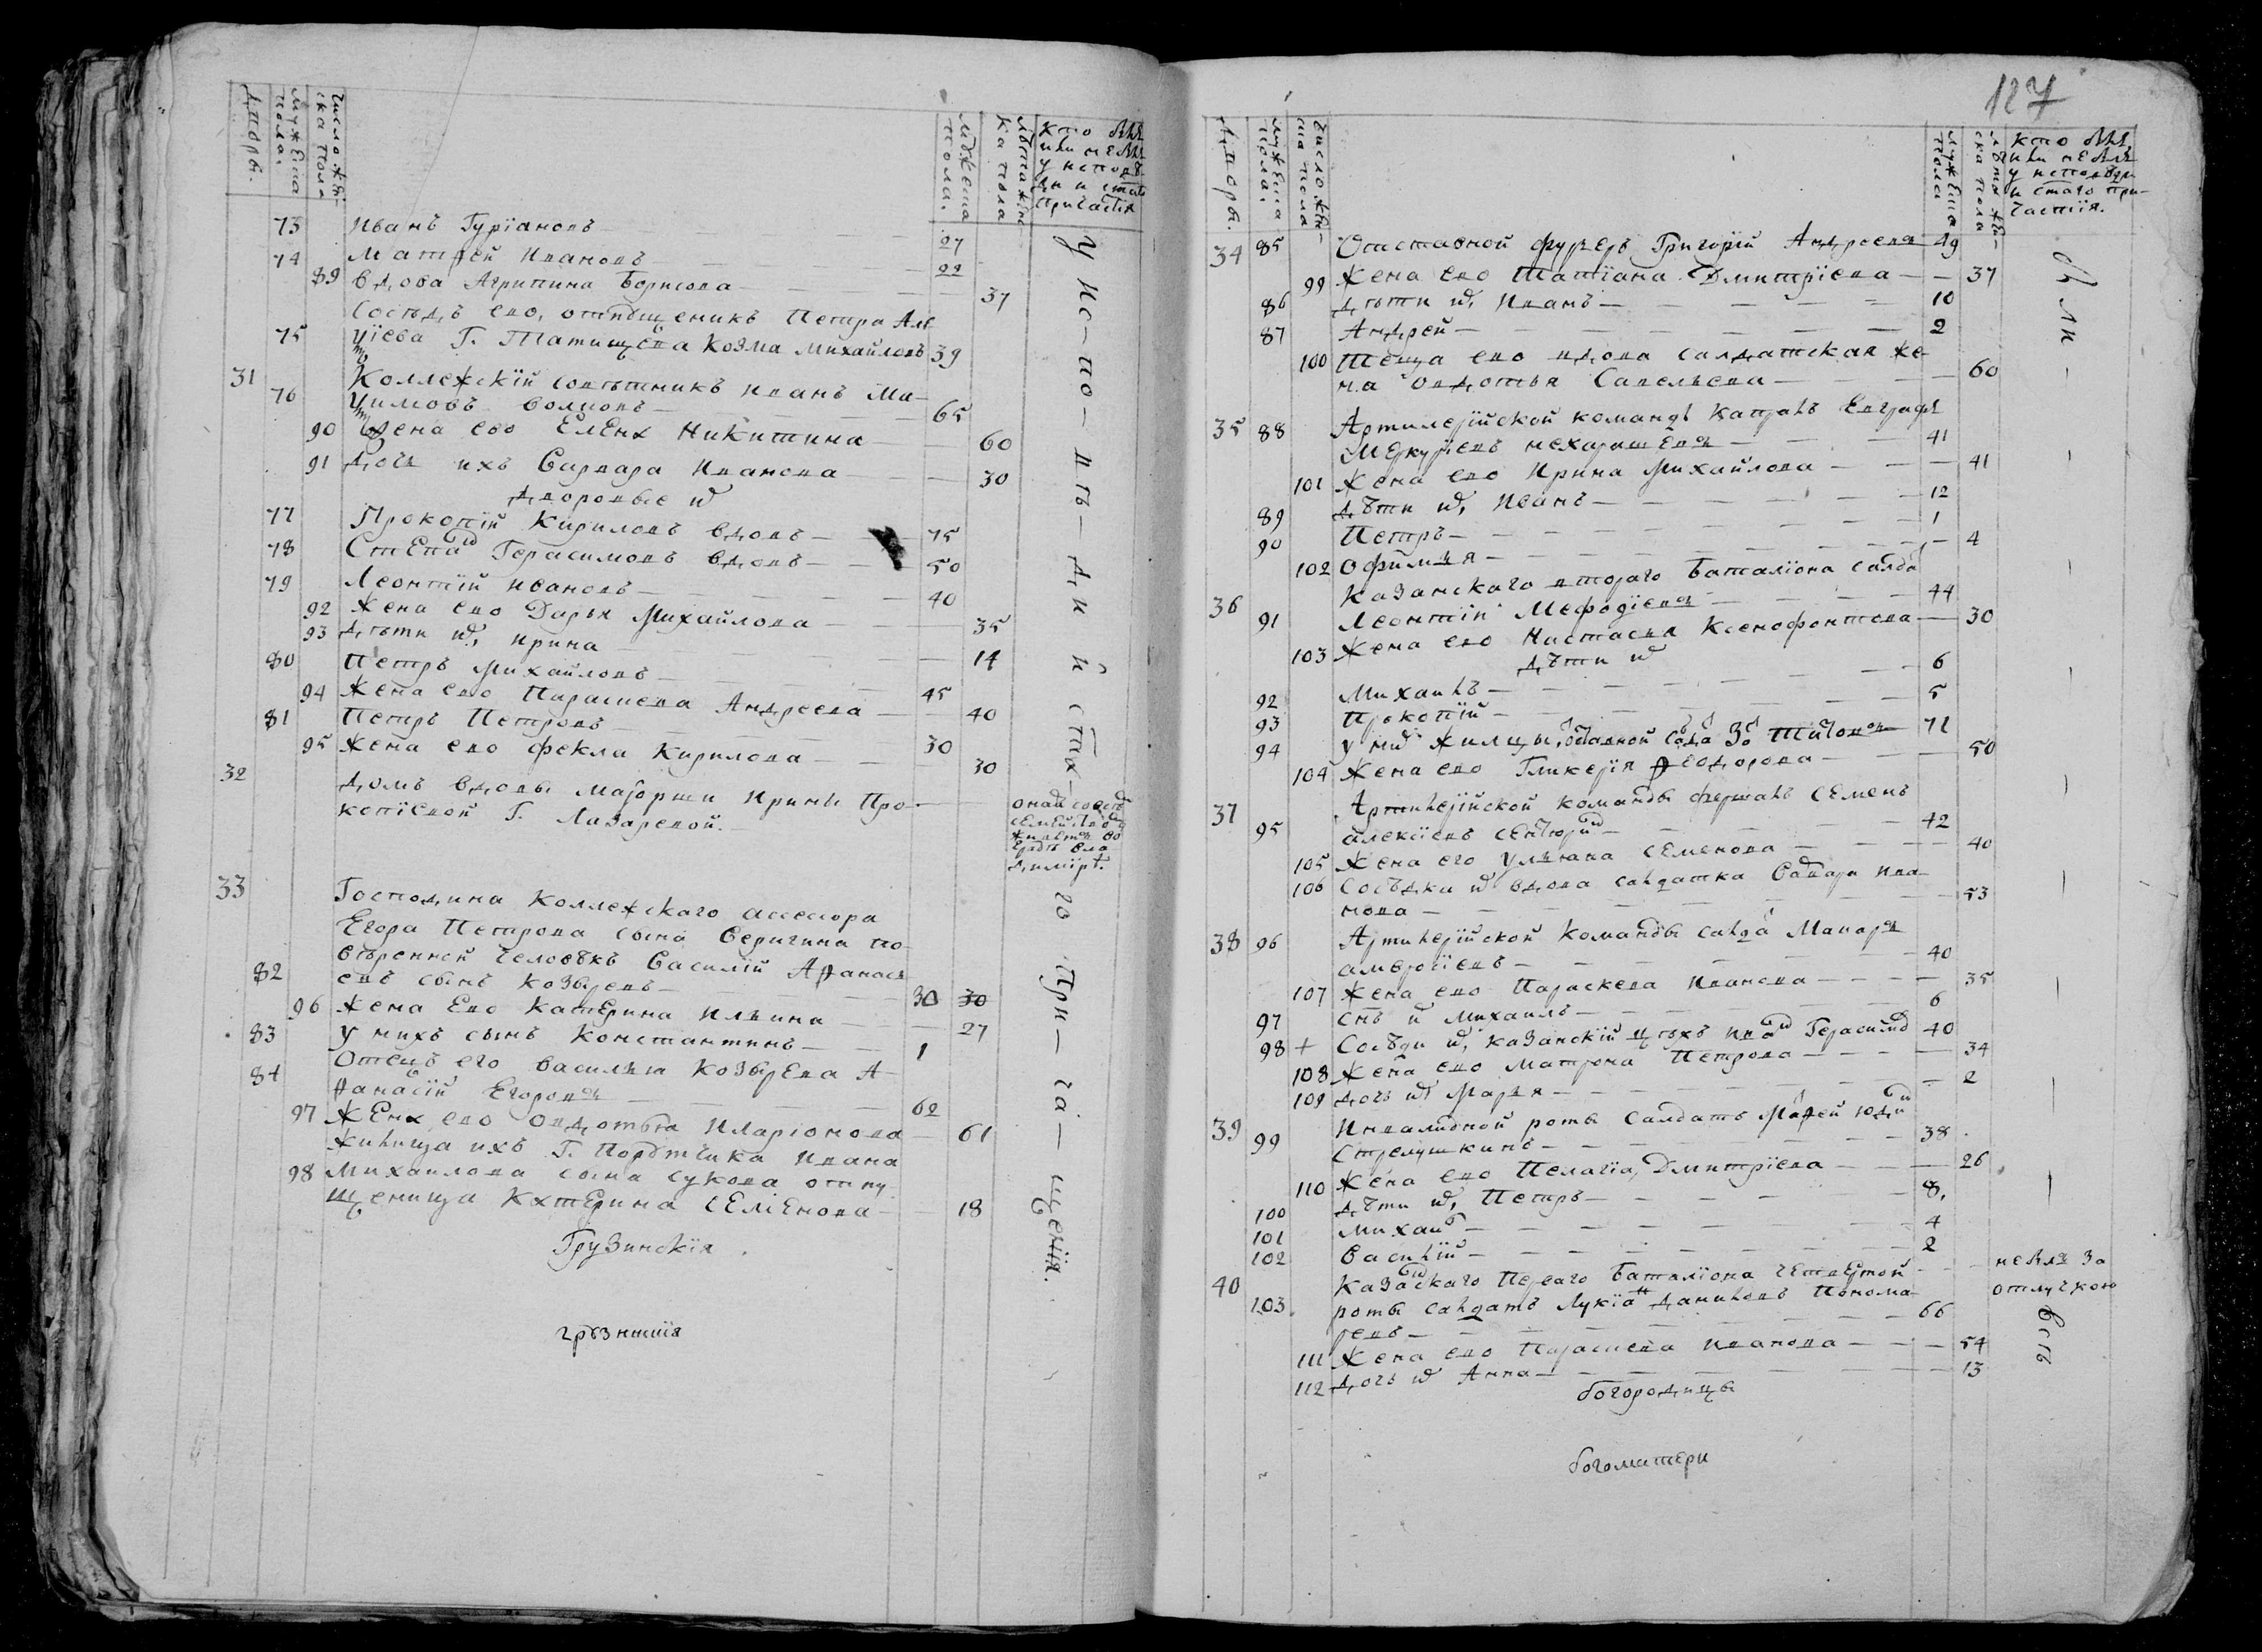 Дворы.
Мужеска пола.
Число женска пола
Мужеска пола.
Лѣта женска пола
кто былъ
или не былъ
у исповѣди и святаго
причастія
73 Иванъ Гурїановъ 27
74 Матфей Ивановъ 22
89 вдова Агрипина Борисова 37
Сосѣдъ ево, отпущеникъ Петра Але
75 ѯїева Г. Татищева Козма Михайловъ 39
31 Коллежскїй совѣтникъ Иванъ Ма
76 ѯимовъ Волковъ 65
90 Жена ево Елена Никитина 60
91 дочь ихъ Варвара Иванова 30
дворовые их
77 Прокопїй Кириловъ вдовъ 75
78 Степанъ Герасимовъ вдовъ 50
79 Леонтїй Ивановъ 40
92 Жена ево Дарья Михайлова 35
93 дѣти их, Ирина 14
80 Петръ Михайловъ 45
94 Жена ево Парасцева Андреева 40
81 Петръ Петровъ 30
95 Жена ево Фекла Кирилова 30
32 домъ вдовы Маїорши Ирины Про
копїевой Г. Лазаревой.
33 Господина Коллежскаго ассесора
Егора Петрова сына Веригина по
вѣренной человѣкъ Василїй Афанась
82 евъ сынъ Козыревъ 30 30
96 Жена Ево Катерина Ильина 27
83 у нихъ сынъ Константинъ 1
Отецъ его Василья Козырева А
84 фанасїй Егоровъ 62
97 Жена ево Овдотья Иларїонова 61
Жилица ихъ Г. Порутчика Ивана
98 Михаилова сына Сукова отпу
щеница Катерина Семенова 18
у ис-по-вѣ-ди и свя-та-го При-ча-щенїя.
Грузинскїя
грузинскїя
127
Дворы.
Мужеска пола.
Число женска пола
Мужеска пола
Лѣта женска пола
кто былъ
или не былъ
у исповѣди
и стаго при-
частїя.
34 85 Отставной фурѣеръ Григорїй Андреевъ 49
99 Жена ево Татїана Дмитрїева 37
86 дѣти их, Иванъ 10
87 Андрей 2
100 Теща ево вдова салдатская же
на Овдотья Савельева 60
35 88 Артилерїйской команды капралъ Евграфъ
Меркурїевъ 41
101 Жена ево Ирина Михайлова 41
89 дѣти их, Иванъ 12
90 Петръ 1
102 Офимья 4
Казанскаго втораго баталїона салда
36 91 Леонтїй Мефодїевъ 44
103 Жена ево Настасья Ксенофонтова 30
дѣти их
92 Михаилъ 6
93 Прокопїй 5
94 у них жилцы, 71
104 Жена ево Гликерїя Феодорова 50
37 Артилерїйской команды Семенъ
95 Алексїевъ 42
105 Жена его Ульяна Семенова 40
106 Сосѣдки их вдова салдатка Варвара Ива
нова 53
38 96 Артилерїйской Команды салда Макаръ
Амвросїевъ 40
107 Жена ево Параскева Иванова 35
97 снъ их Михаилъ 6
98 + Сосѣди их, казанскїй цѣхъ Герасимов 40
108 Жена ево Матрона Петрова 34
109 дочь их Марья 2
39 99 Инвалидной роты Салдатъ
Стрелушкинъ 38
110 Жена ево Пелагїа Дмитрїева 26
100 дѣти их, Петръ 8
101 Михаил 4
102 Василїй 2
40 Казанскаго Перваго баталїона четвертой
103 роты салдатъ Лукїанъ Даниловъ Понома
ревъ 66
111 Жена ево Парасцева Иванова 54
112 дочь их Анна 13
бы ли
не былъ за
отлучкою
всѣ
богородицы
богоматери